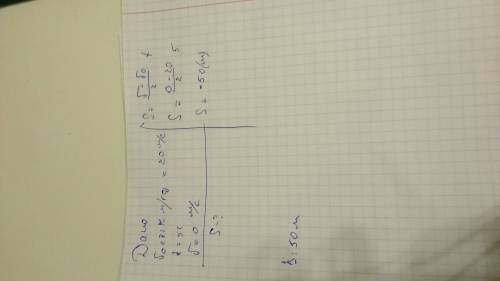 Дано
υ₀ = 72 км/ч = 20 м/с
t = 5с
υ = 0 м/с
S - ?
S = υ - υ₀ / 2 t
S = 0 - 20 / 2 5
S = -50 (м)
S = 50 м